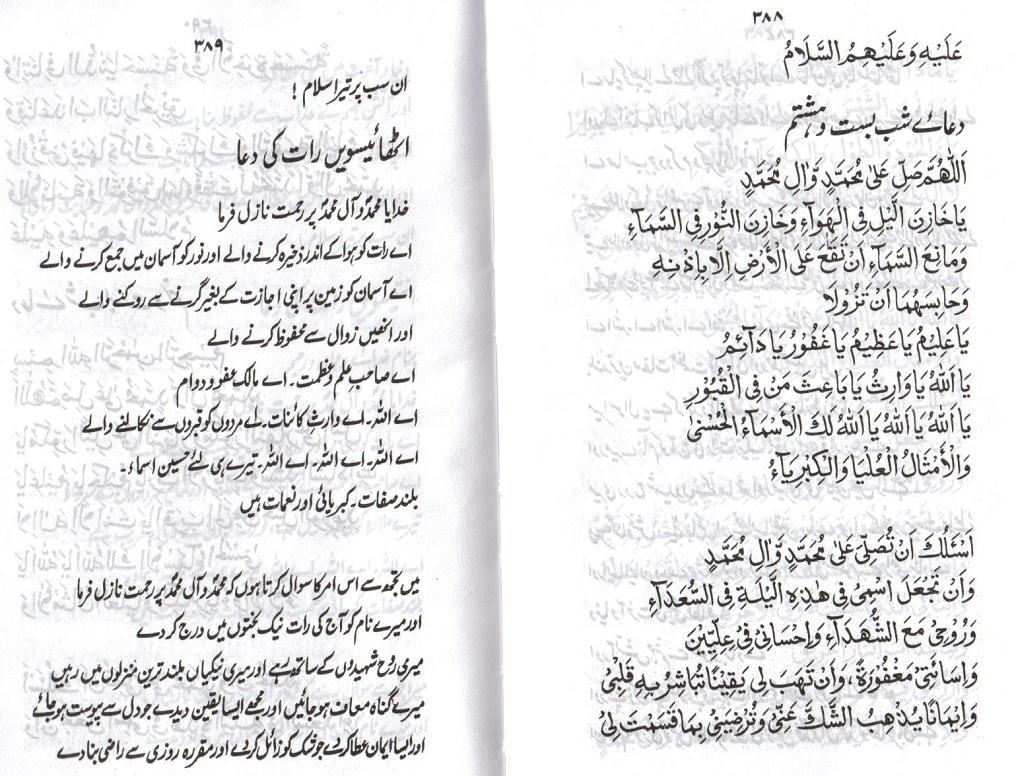 ۳۸۸
عَلَيْهِ وَعَلَيْهِمُ السَّلَامُ
دعائے شب بست و ہشتم
اَللّٰهُمَّ صَلِّ عَلٰى مُحَمَّدٍ وَّاٰلِ مُحَمَّدٍ
يَا خَازِنَ الَّيْلِ فِى الْهَوَآءِ وَخَازِنَ النُّوْرِ فِى السَّمَآءِ
وَمَانِعَ السَّمَآءِ اَنْ تَقَعَ عَلَى الْاَرْضِ اِلَّا بِاِذْنِهٖ
وَحَابِسَهُمَا اَنْ تَزُوْلَا
يَا عَلِيْمُ يَا عَظِيْمُ يَا غَفُوْرُ يَا دَآئِمُ
يَا اَللّٰهُ يَا وَارِثُ يَا بَاعِثَ مَنْ فِى الْقُبُوْرِ
يَا اَللّٰهُ يَا اَللّٰهُ يَا اَللّٰهُ لَكَ الْاَسْمَآءُ الْحُسْنٰى
وَالْاَمْثَالُ الْعُلْيَا وَالْكِبْرِيَآءُ
اَسْئَلُكَ اَنْ تُصَلِّىَ عَلٰى مُحَمَّدٍ وَّاٰلِ مُحَمَّدٍ
وَاَنْ تَجْعَلَ اسْمِىْ فِى هٰذِهِ الَّيْلَةِ فِى السُّعَدَآءِ
وَرُوْحِىْ مَعَ الشُّهَدَآءِ وَاِحْسَانِىْ فِىْ عِلِّيِّيْنَ
وَاِسَائَتِىْ مَغْفُوْرَةً، وَاَنْ تَهَبَ لِى يَقِيْنًا تُبَاشِرُ بِهٖ قَلْبِىْ
وَاِيْمَانًا يُذْهِبُ الشَّكَّ عَنِّىْ وَتُرْضِيَنِىْ بِمَا قَسَمْتَ لِىْ
۳۸۹
ان سب پر تیرا سلام !
اٹھائیسویں رات کی دعا
خدایا محمدؐ و آل محمدؐ پر رحمت نازل فرما
اے رات کو ہوا کے اندر ذخیرہ کرنے والے اور نور کو آسمان میں جمع کرنے والے
اے آسمان کو زمین پر اپنی اجازت کے بغیر گرنے سے روکنے والے
اور انھیں زوال سے محفوظ کرنے والے
اے صاحب علم و عظمت ۔ اے مالک عفو و دوام
اے اللہ ۔ اے وارث کائنات ۔ اے مردوں کو قبروں سے نکالنے والے
اے اللہ ۔ اے اللہ ۔ اے اللہ ۔ تیرے ہی لئے حسین اسماء ۔
بلند صفات ۔ کبریائی اور نعمات ہیں
میں تجھ سے اس امر کا سوال کرتا ہوں کہ محمدؐ و آل محمدؐ پر رحمت نازل فرما
اور میرے نام کو آج کی رات نیک بختوں میں درج کر دے
میری روح شہیدوں کے ساتھ رہے اور میری نیکیاں بلند ترین منزلوں میں رہیں
میرے گناہ معاف ہو جائیں اور مجھے ایسا یقین دیدے جو دل سے پیوست ہو جائے
اور ایسا ایمان عطا کر دے جو شک کو زائل کر دے اور مقررہ روزی سے راضی بنا دے